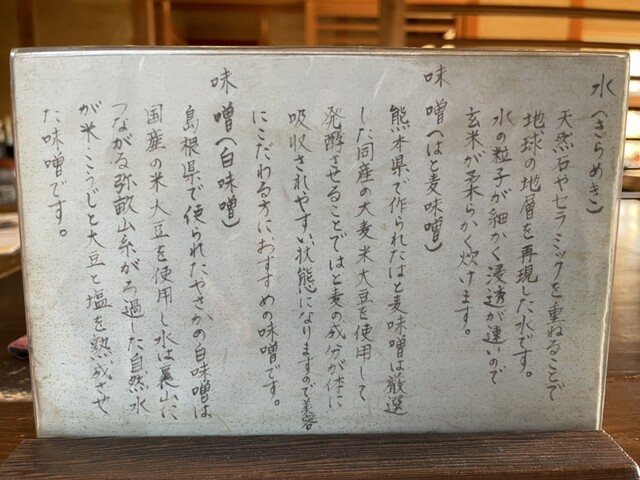 水（きらめき）
天然石やセラミックを重ねることで
地球の地層を再現した水です。
水の粒子が細かく浸透が速いので
玄米が柔らかく炊けます。
味噌（はと麦味噌）
熊本県で作られたはと麦味噌は厳選
した同産の大麦米大豆を使用して
発酵させることではと麦の成分が体に
吸収されやすい状態になりますので美容
にこだわる方におすすめの味噌です。
味噌（白味噌）
島根県で使られたやさかの白味噌は
国産の米大豆を使用し水は裏山に
つながる弥畝山系がろ過した自然水
が米こうじと大豆と塩を熟成させ
た味噌です。